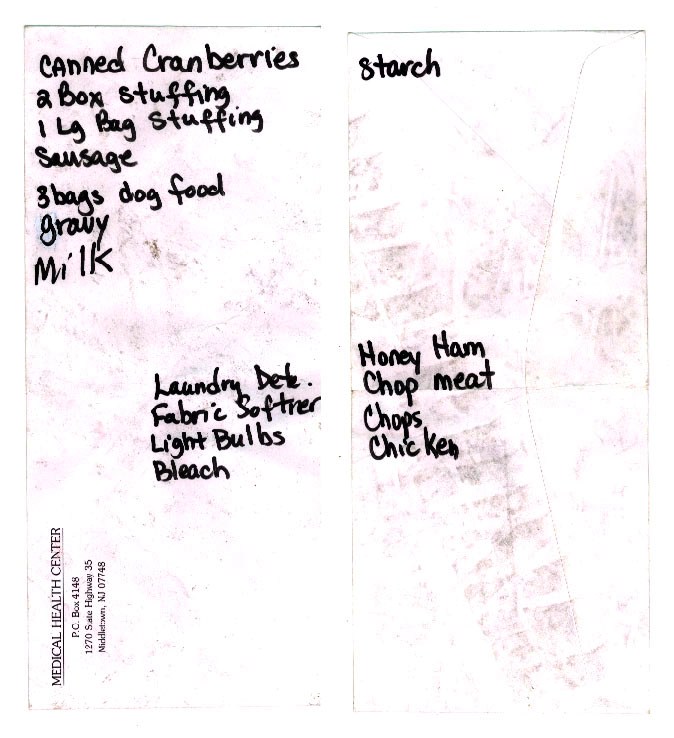 CANned Cranberries
2 Box stuffing
1 Lg Bag Stuffing
Sausage
3 bags dog food
gravy
Milk
Laundry Det.
Fabric Softner
Light Bulbs
Bleach
MEDICAL HEALTH CENTER
P.C. Box 4148
1270 State Highway 35
Middletown, NJ 07748
Starch
Honey Ham
Chop meat
Chops
Chicken